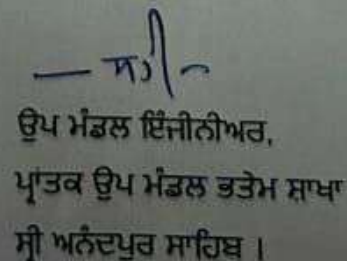 — ਸਹੀ —
ਉਪ ਮੰਡਲ ਇੰਜੀਨੀਅਰ,
ਪ੍ਰਾਂਤਕ ਉਪ ਮੰਡਲ ਭਤੇਮ ਸ਼ਾਖਾ
ਸ੍ਰੀ ਅਨੰਦਪੁਰ ਸਾਹਿਬ ।